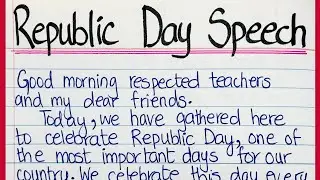 Republic Day Speech
Good morning respected teachers
and my dear friends.
Today, we have gathered here
to celebrate Republic Day, one of
the most important days for our
country. We celebrate this day every